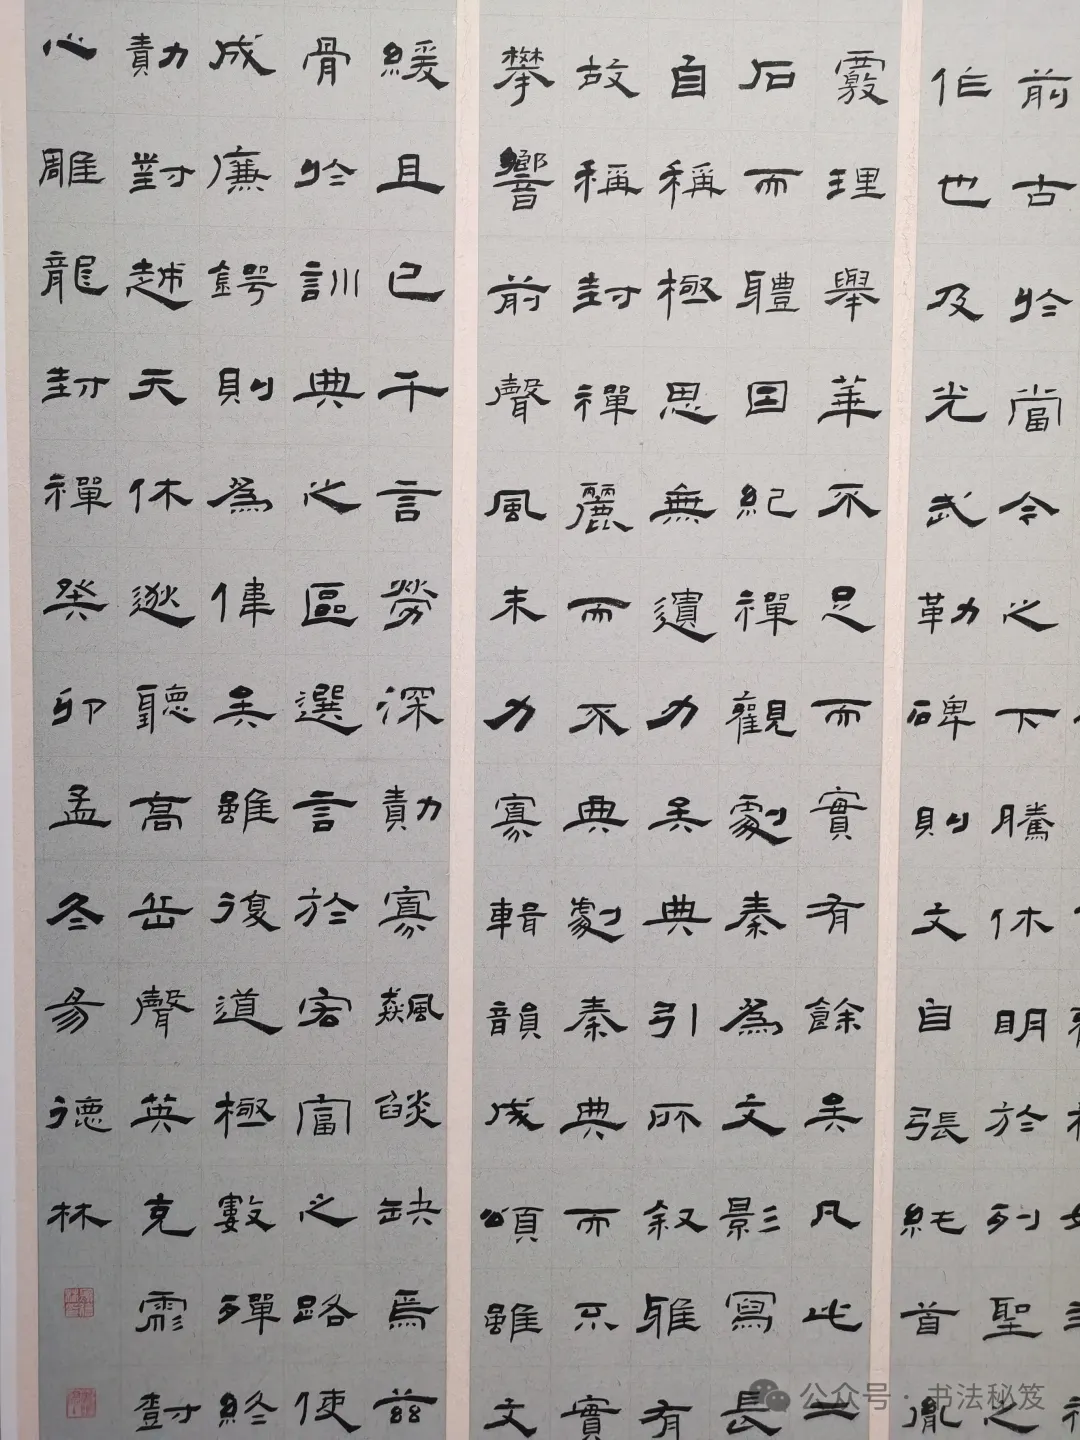 前古於當今之下騰休明於列聖之
伯也及光武勒碑則文自張純首胤
覈理舉華不足而實有餘矣凡此二
石而體因紀禪觀劇秦為文影寫長
自稱極思無遺力矣典引所叙雅有
故稱封禪麗而不典劇秦典而不實
攀響前聲風末力寡輯韻成頌雖文
緩且已千言勞深勣寡飆焰缺焉茲
骨於訓典之區選言於宏富之路使
成廉鍔則為偉矣雖復道極數殫終
勣對越天休逖聽高岳聲英克彪封
心雕龍封禪癸卯孟冬易德林
公众号·书法秘笈